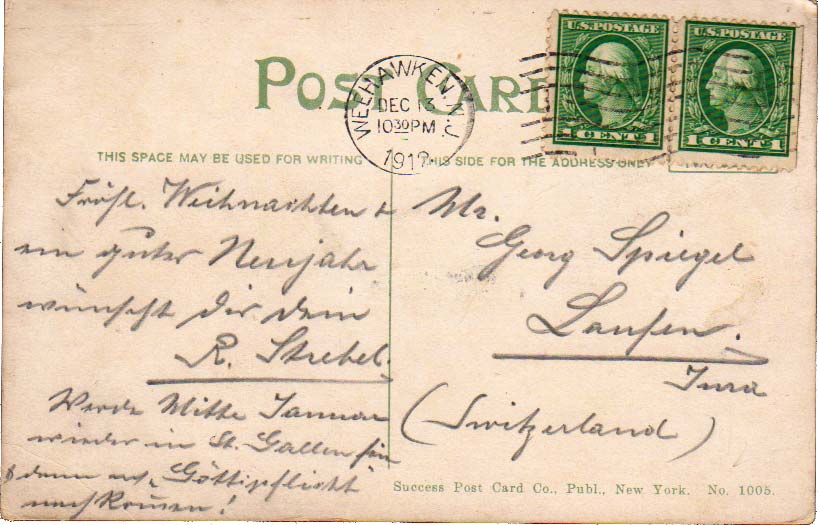 POST CARD
U.S. POSTAGE
U.S. POSTAGE
1 CENT 1
1 CENT 1
WEEHAWKEN, N.J.
DEC 13
10 30 PM
1912
THIS SPACE MAY BE USED FOR WRITING
THIS SIDE FOR THE ADDRESS ONLY
Fröhl. Weihnachten &
ein gutes Neujahr
wünscht dir dein
R. Strebel.
Werde Mitte Januar
wieder in St. Gallen sein
& dann auch Göttipflicht
nachkom̄en!
Mr.
Georg Spiegel
Laufen.
Jura
(Switzerland)
Success Post Card Co., Publ., New York. No. 1005.